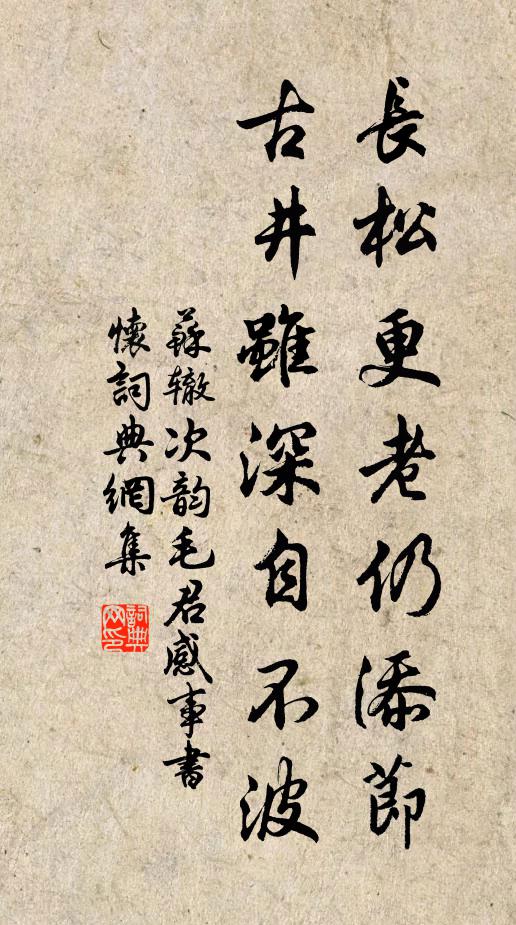 長松更老仍添節
古井雖深自不波
蘇辙次韵毛君感事書
懷詞典網集
詞典网印